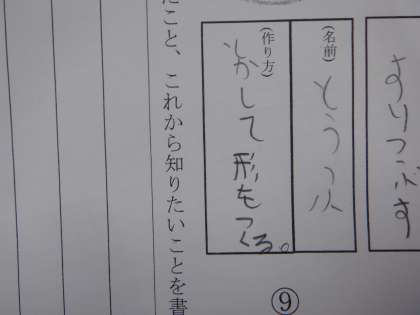 すりつぶす
(名前)
とうふ
(作り方)
かして形をつくる。
たこと、これから知りたいことを書
⑨